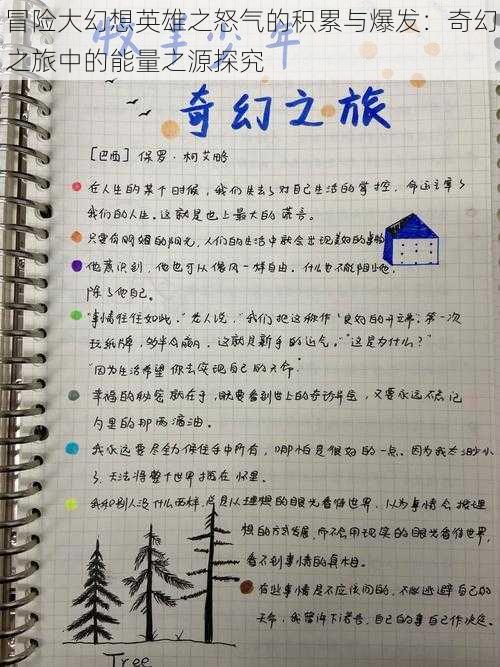 冒险大幻想英雄之怒气的积累与爆发：奇幻
之旅中的能量之源探究
牧羊少年
奇幻之旅
[巴西] 保罗·柯艾略
在人生的某个时候，我们失去了对自己生活的掌控，命运主宰了
我们的人生。这就是世上最大的谎言。
只要有明媚的阳光，人们的生活中就会出现美好的事物
他意识到，他也可以像风一样自由。什么也不能阻止他，
除了他自己。
"事情往往如此。"老人说，"我们把这称作'良好的开端'。第一次
玩纸牌，几乎会赢，这就是新手的运气。""这是为什么？"
"因为生活希望你去实现自己的天命"
幸福的秘密就在于，既要看到世上的奇珍异宝，又要永远不忘记
勺里的那两滴油。
我永远要尽全力保住手中所有，哪怕是很好的一点。因为我太渺小
了，无法将整个世界揽在怀里。
我和别人没什么两样，总是以理想的眼光看待世界，以为事情会按理
想的方式发展，而不会用现实的眼光看待世界，
看不到事情的真相。
有些事情是不应该问的，不能逃避自己的
天命，我曾许下诺言，自己的事自己作决定。
Tree